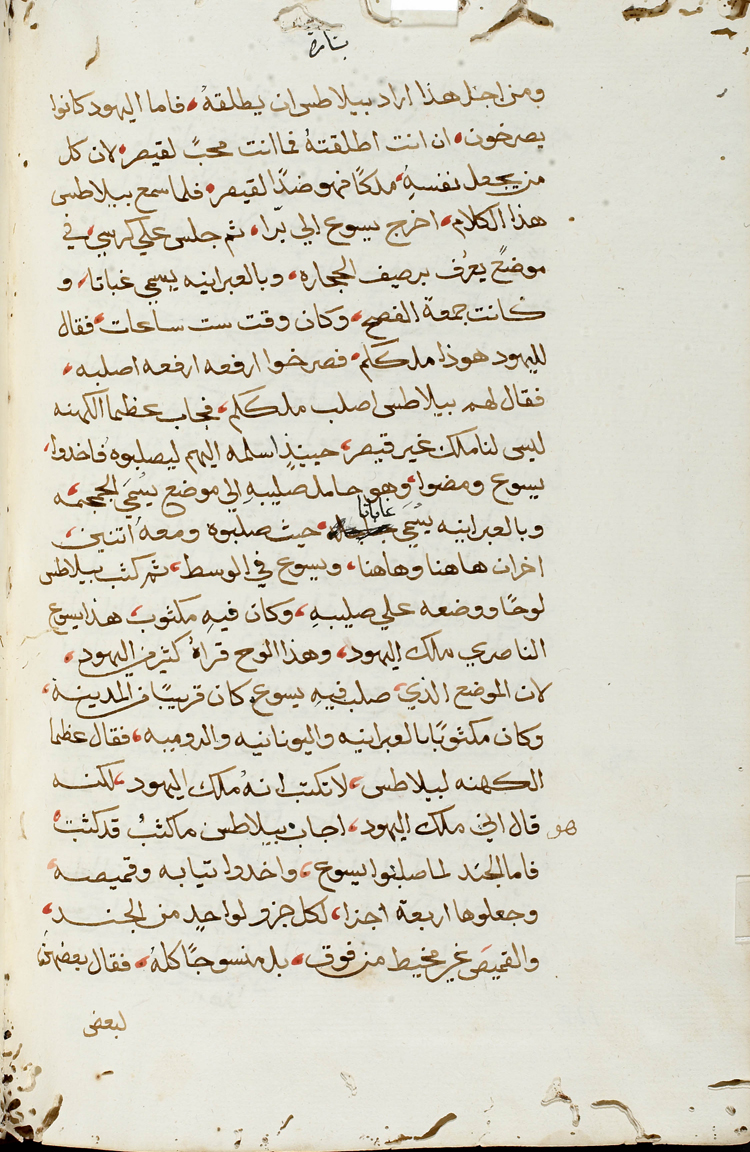 بشارة
ومن اجل هذا اراد بيلاطس ان يطلقهُ، فاما اليهود كانوا
يصرخون، ان انت اطلقتهُ فماانت محبً لقيصر، لان كل
من يجعل نفسهِ، ملكًا فهو ضدًا لقيصر، فلما سمع بيلاطس
هذا الكلام، اخرج يسوع الي برّا، ثم جلس علي كرسي، في
موضعً يعرُف برصيف الحجاره، وبالعبرانيه يسمي غباتا، و
كانت جمعة الفصح، وكان وقت ست ساعات، فقال
لليهود هوذا ملككم، فصرخوا ارفعه ارفعه اصلبه،
فقال لهم بيلاطس اصلب ملككم، فجاب عظما الكهنه
ليس لنا ملك غير قيصر، حينيذٍ اسلمه اليهم ليصلبوه، فاخدوا،
يسوع ومضوا، وهو حامل صليبهِ الي موضع يسُمَي الجمجمه،
وبالعبرانيه يسُمَي غاباتا، حيث صلبوه ومعهُ اتنين،
اخران هاهنا وهاهنا، ويسوع في الوسط، ثم كتب بيلاطس
لوحًا ووضعه علي صليبهِ، وكان فيهِ مكتوب، هذا يسوع
الناصري ملك اليهود، وهذا الوح قراهُ كثير من اليهود،
لان الموضع الذي، صلب فيهِ يسوع، كان قريبًا من المدينة،
وكان مكتوبًا بالعبرانيه واليونانيه والروميه، فقال عظما
الكهنه لبيلاطس، لا تكتب انهُ ملك اليهود، لكنه
هو قال اني ملك اليهود، اجاب بيلاطس ما كتبُ قد كتبت
فاما الجند لما صلبوا يسوع، واخدوا تيابه وقميصه،
وجعلوها اربعة اجزا، لكل جزو لواحدٍ من الجند،
والقميصَ غير مخيط من فوق، بل منسوجًا كلهُ، فقال بعضهم
لبعض